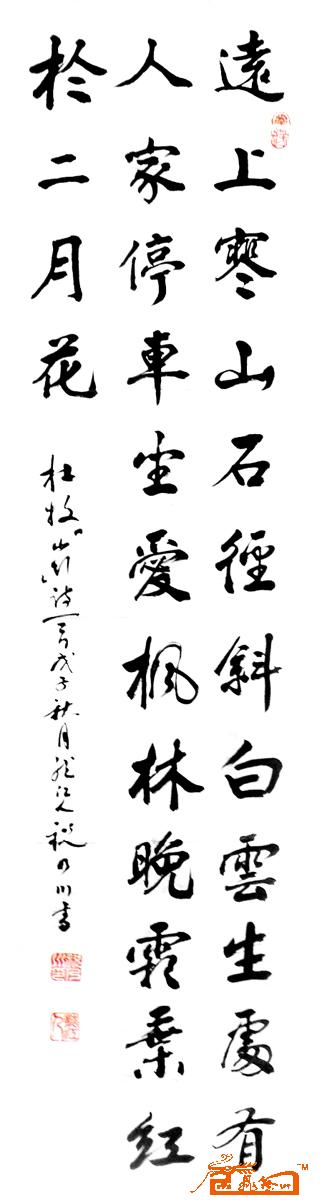 遠上寒山石徑斜白雲生處有
人家停車坐愛楓林晚霜葉紅
於二月花
杜牧「山行」詩一首戊子秋月江人税乃川書